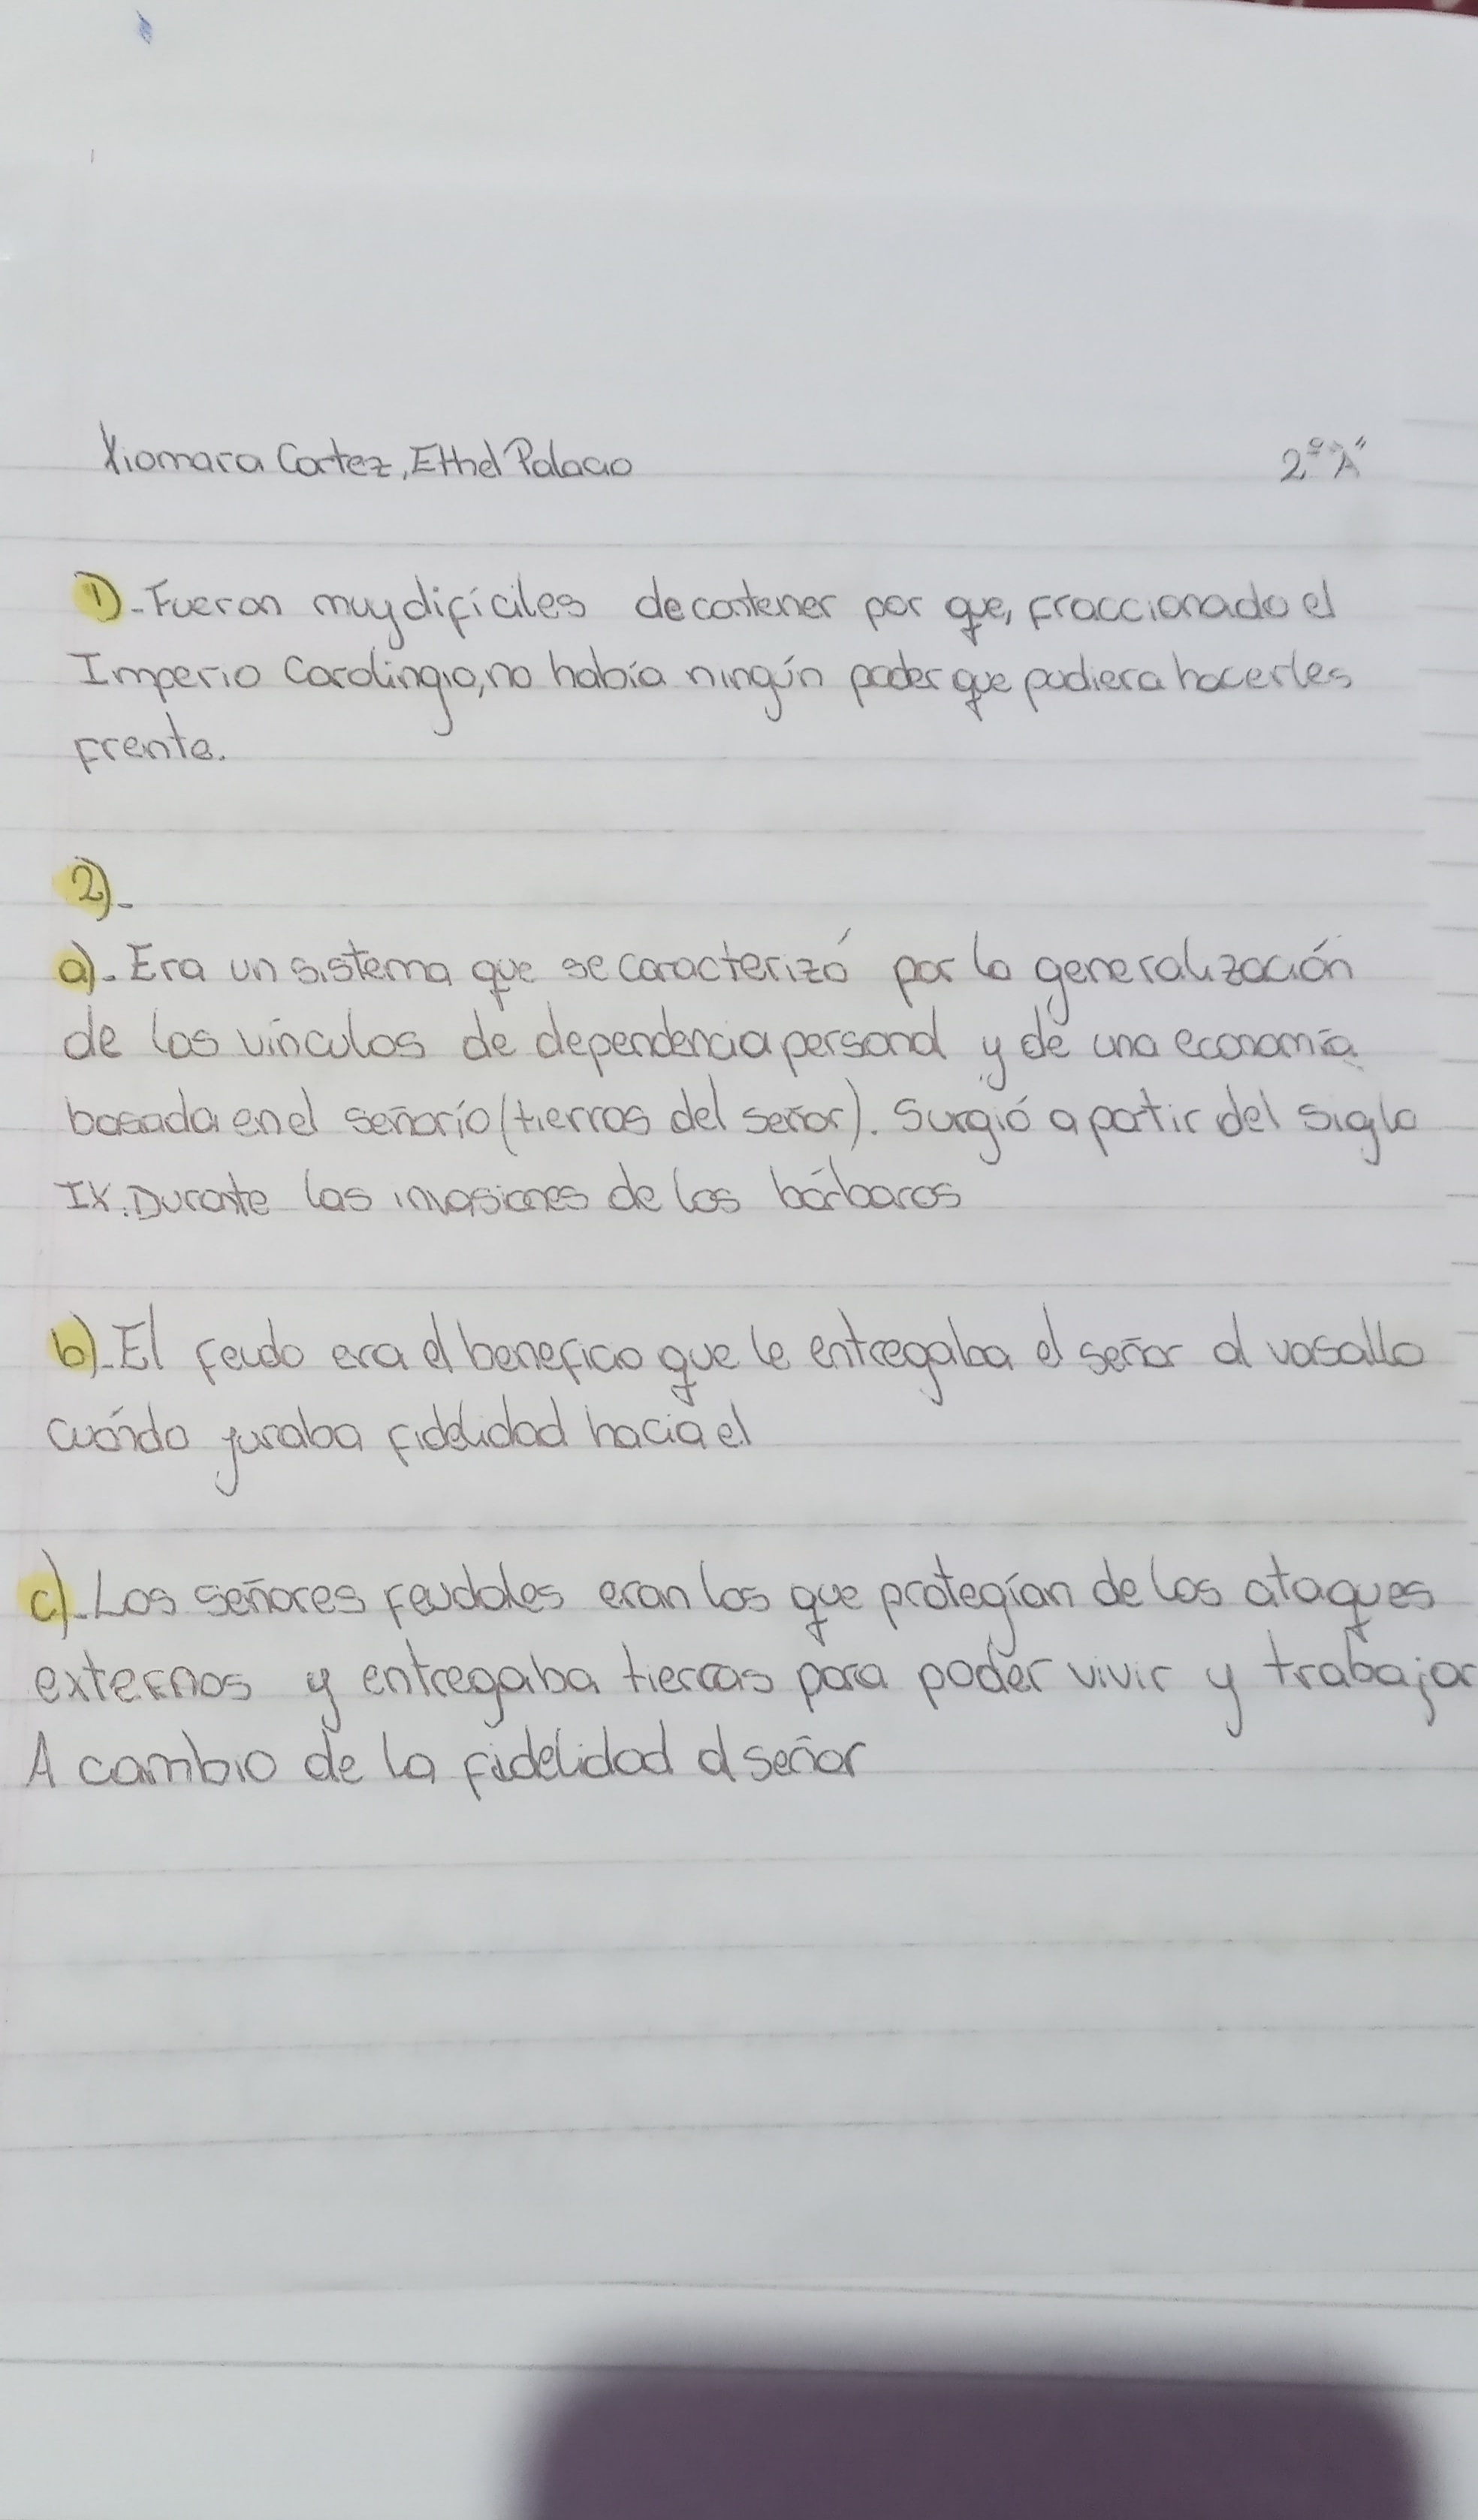 Xiomara Cortez, Ethel Palacio 2º "A"
1)-Fueron muy difíciles de contener por que, fraccionado el
Imperio Carolingio, no había ningún poder que pudiera hacerles
frente.
2)-
a)-Era un sistema que se caracterizó por la generalización
de los vínculos de dependencia personal y de una economía
basada en el señorío (tierras del señor). Surgió a partir del siglo
IX. Durante las invasiones de los bárbaros
b)-El feudo era el beneficio que le entregaba el señor al vasallo
cuándo juraba fidelidad hacia el
c)-Los señores feudales eran los que protegían de los ataques
externos y entregaba tierras para poder vivir y trabajar
A cambio de la fidelidad al señor